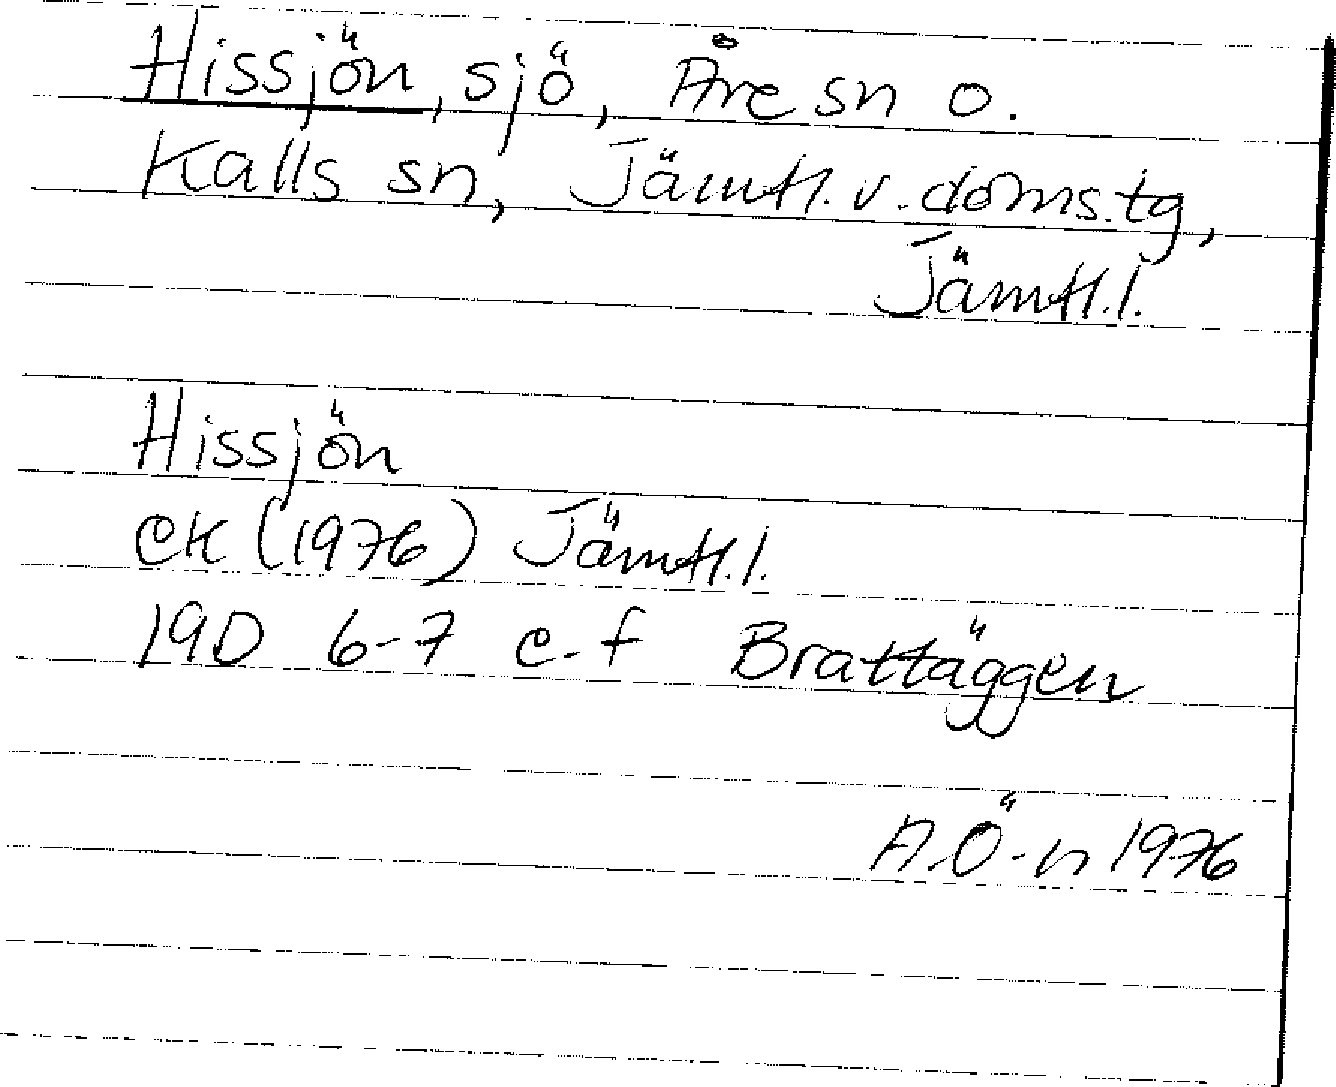 Hissjön, sjö, Åre sn o.
Kalls sn, Jämtl. v. doms.tg,
Jämtl.l.
Hissjön
ek (1976) Jämtl.l.
19D 6-7 e-f Brattäggen
A.Ö-n 1976